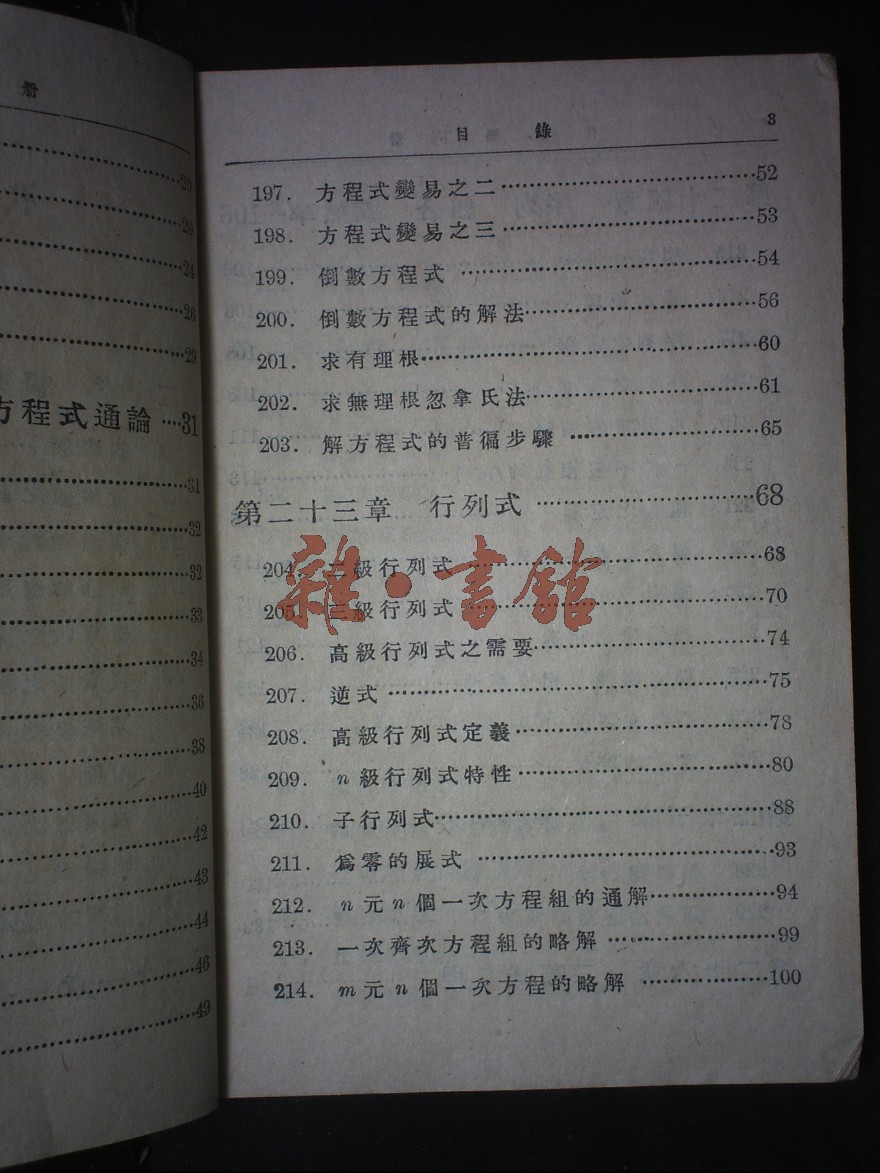 册
20
20
24
26
29
方程式通論 …31
31
32
32
33
34
36
38
40
42
43
44
46
49
目錄 3
197. 方程式變易之二……52
198. 方程式變易之三……53
199. 倒數方程式……54
200. 倒數方程式的解法……56
201. 求有理根……60
202. 求無理根忽拿氏法……61
203. 解方程式的普徧步驟……65
第二十三章 行列式……68
204. 二級行列式……68
205. 三級行列式……70
206. 高級行列式之需要……74
207. 逆式……75
208. 高級行列式定義……78
209. n級行列式特性……80
210. 子行列式……88
211. 爲零的展式……93
212. n元n個一次方程組的通解……94
213. 一次齊次方程組的略解……99
214. m元n個一次方程的略解……100
雜·書館